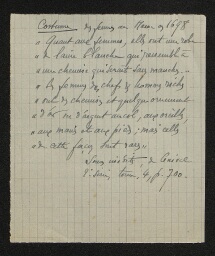 Costume des femmes en 1698
" Quant aux femmes, elles ont une robe
" de laine blanche qui ressemble à
" une chemise qui serait sans manches
" les femmes des chefs & hommes riches
" ont des chemises et quelque ornement
" d'or ou d'argent au col, aux oreilles
" aux mains et aux pieds; mais celles
" de cette façon sont rares "
de
p. 700.